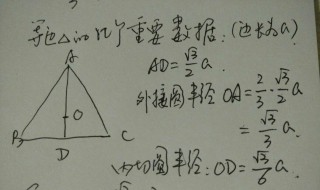 等边△的几个重要数据:(边长为a)
A
AD=√3/2 a
外接圆半径 OA=2/3·√3/2 a
O
=√3/3 a.
B D C
内切圆半径:OD=√3/6 a.